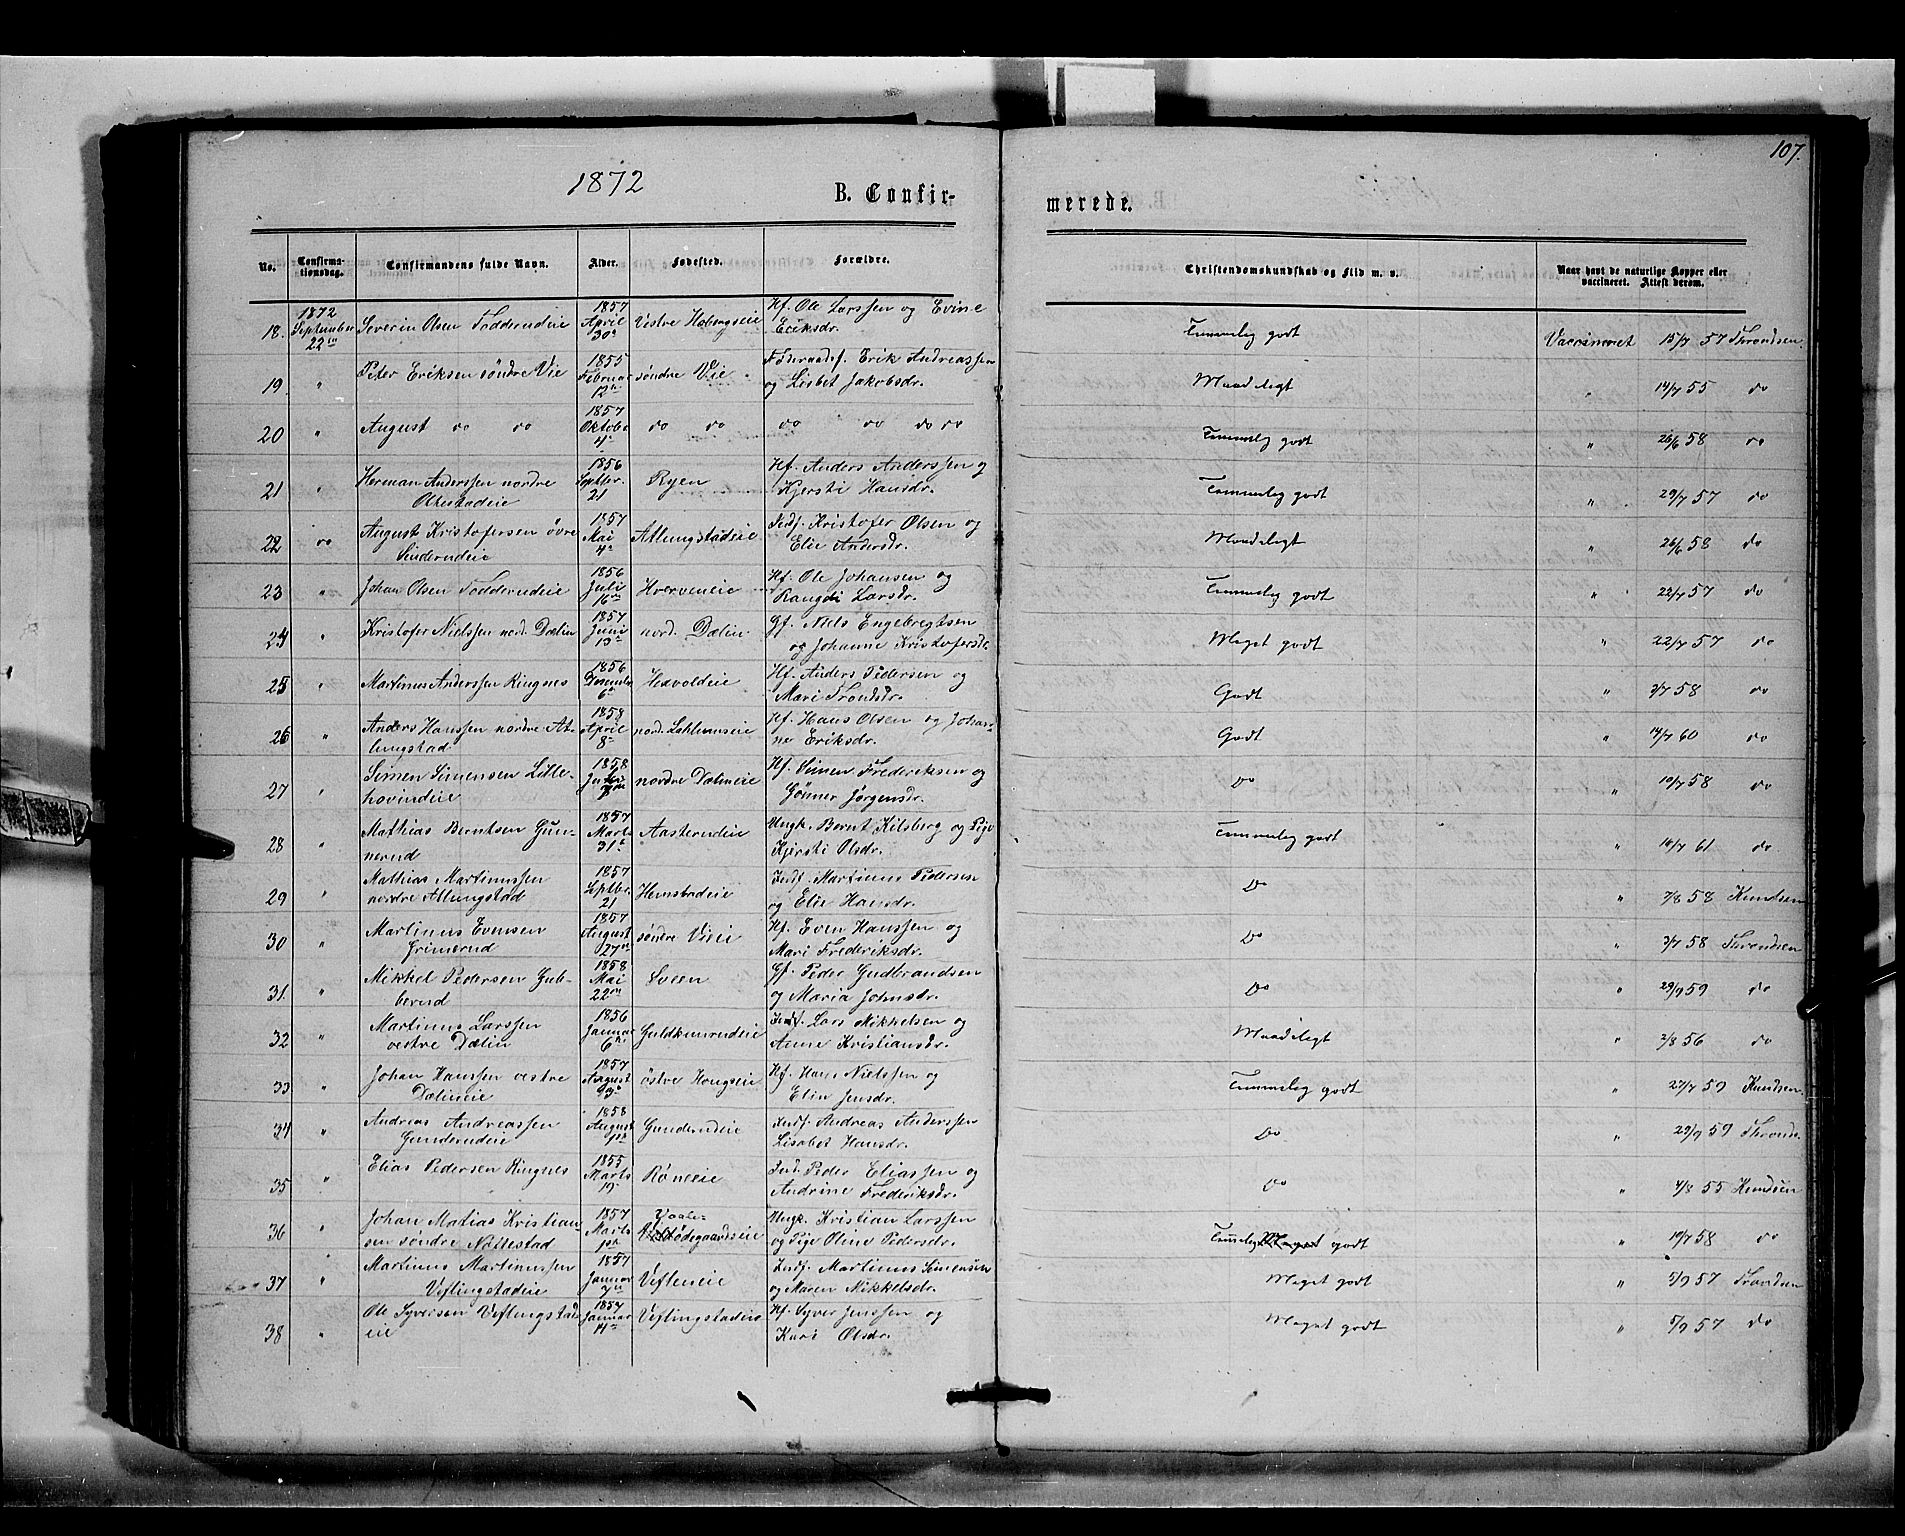 107.
1872
B. Confir-
merede.
No.
Confirma-
tionsdag.
Confirmandens fulde Navn.
Alder.
Fødested.
Forældre.
Christendomskundskab og Flid m. v.
Naar havt de naturlige Kopper eller
vaccineret. Attest derom.
18. 1872 September 22de Severin Olsen Fodderudeie 1857 April 30 Vestre Hobergseie Hf. Ole Larssen og Evine Eriksdr. Temmelig godt Vaccineret 15/7 57 Throndsen.
19. " Peter Eriksen søndre Vie 1855 Februar 12te søndre Vie Føderaadsf. Erik Andreassen og Lisbet Jakobsdr. Maadeligt " 14/7 55 do
20 " August do do 1857 Oktobe 4 do do do do do do Temmelig godt " 26/6 58 do
21 " Herman Anderssen nordre 1856 Septbr. 21 Ryen Hf. Anders Anderssen og Kjersti Hansdr. Temmelig godt " 29/7 57 do
22 do August Kristofersen øvre Linderudeie 1857 Mai 4 Atlungstadeie Inds. Kristofer Olsen og Elie Andersdr. Maadeligt " 26/6 58 do
23 " Johan Olsen Fodderudeie 1856 Juli 16 Hverveneie Hf. Ole Johansen og Rangdi Larsdr. Temmelig godt " 22/7 57 do
24 " Kristofer Nielssen nord. Dælin 1857 Juni 13 nord. Dælin Gf. Niels Engebregtsen og Johanne Kristofersdr. Meget godt " 22/7 57 do
25 " Martinus Anderssen Ringnes 1856 December 6 Hexvoldeie Hf. Anders Pedersen og Mari Trondsdr. Godt " 3/7 58 do
26 " Anders Hanssen nordre At-lungstad 1858 April 8 nord. Hf. Hans Olsen og Johan-ne Eriksdr. Godt " 14/7 60 do
27 " Simen Simensen Lille-hovindeie 1858 nordre Dælineie Hf. Simen Frederiksen og Gønner Jørgensdr. Do " 10/7 58 do
28 " Mathias Berntsen Gun-nerud 1857 Marts 31 Aasterudeie Ungk. Bernt Kilsberg og Pige Kjersti Olsdr. Temmelig godt " 14/7 61 do
29 " Mathias Martinussen nordre Atlungstad 1857 Septbr. 21 Hemstadeie Inds. Martinus Pedersen og Elie Hansdr. Do " 7/8 58 Knudsen
30 " Martinus Evensen Grimerud 1857 August 27 søndre Vieei Hf. Even Hanssen og Mari Frederiksdr. Do " 3/7 58 Throndsen
31. " Mikkel Pedersen Gub-berud 1858 Mai 22 Sveen Gf. Peder Gudbrandsen og Maria Johnsdr. Do " 29/9 59 do
32 " Martinus Larssen vestre Dælin 1856 Januar 6 Guldkunrudeie Inds. Lars Mikkelsen og Anne Kristiansdr. Maadeligt " 2/8 56 do
33 " Johan Hanssen vestre Dælineie 1857 August 23 østre Hougseie Hf. Hans Nielssen og Elin Jensdr. Temmelig godt " 27/7 59 Knudsen.
34 " Andreas Andreassen Gunderudeie 1858 August Gunderudeie Inds. Andreas Anderssen Lisabet Hansdr. Do " 29/9 59 Thronds.
35 " Elias Pedersen Ringnes 1855 Marts 19 Røneeie Inds. Peder Eliassen og Andrine Frederiksdr. Do " 4/8 55 Knudsen
36 " Johan Matias Kristian-sen søndre Nøttestad 1857 Marts Ødegaardseie Ungk. Kristian Larssen og Pige Oline Pedersdr. Temmelig Meget godt " 10/7 58 do
37 " Martinus Martinussen Veflingstadeie 1857 Januar Vefleneie Inds. Martinus Simensen og Maren Mikkelsdr. Meget godt " 5/9 57 Trondsen
38 " Ole Syversen Veflingstad-eie 1857 Januar 14 Veflingstadeie Hf. Syver Jenssen og Kari Olsdr. Meget godt " 5/9 57 do